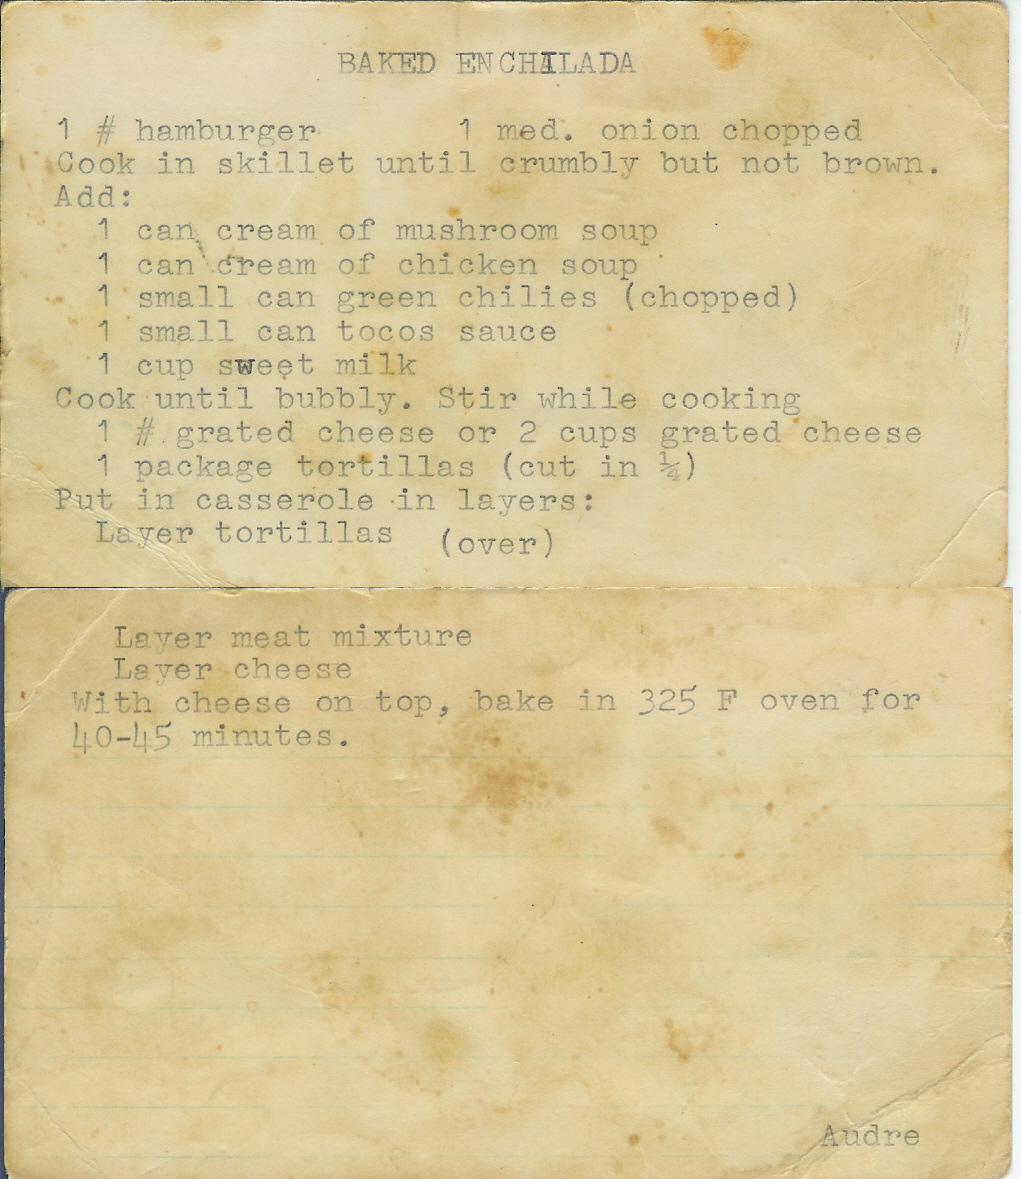 BAKED ENCHILADA
1 # hamburger 1 med. onion chopped
Cook in skillet until crumbly but not brown.
Add:
1 can cream of mushroom soup
1 can cream of chicken soup
1 small can green chilies (chopped)
1 small can tocos sauce
1 cup sweet milk
Cook until bubbly. Stir while cooking
1 # grated cheese or 2 cups grated cheese
1 package tortillas (cut in ¼)
Put in casserole in layers:
Layer tortillas (over)
Layer meat mixture
Layer cheese
With cheese on top, bake in 325 F oven for
40-45 minutes.
Audre